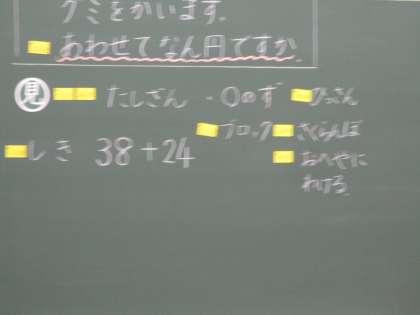 グミをかいます。
あわせてなん円ですか。
見 たしざん ・○のず ひっさん
ブロック さくらんぼ
しき 38+24 おへやに
わける